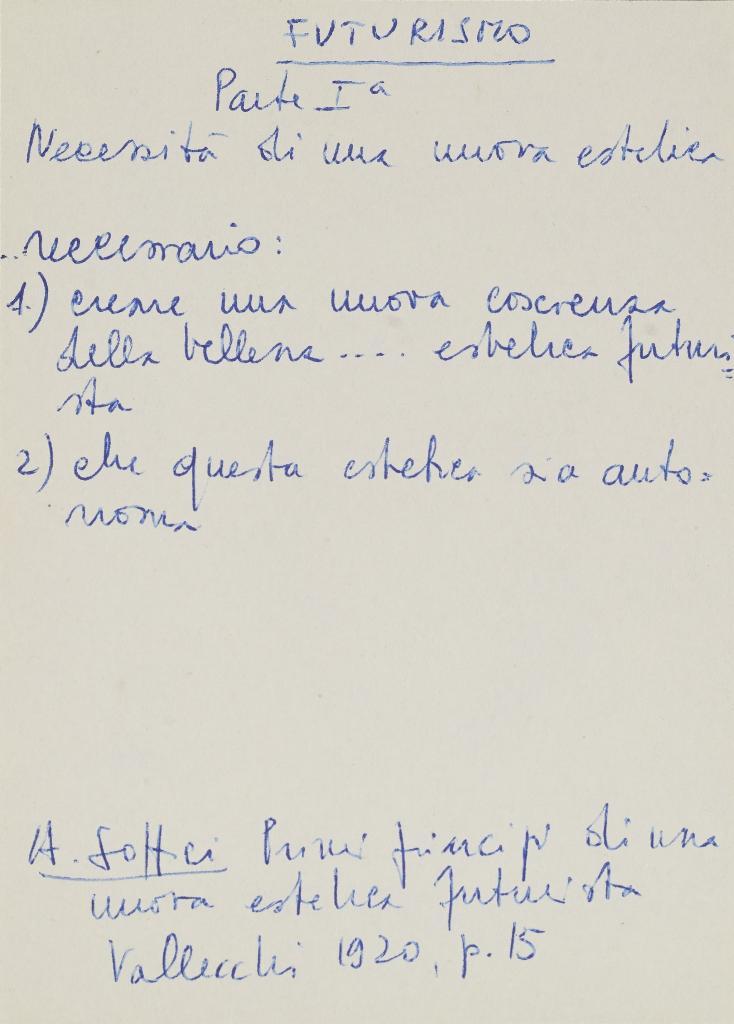 FUTURISMO
Parte Iª
Necessità di una nuova estetica
..necessario:
1.) creare una nuova coscienza
della bellezza .... estetica futuri=
sta
2) che questa estetica sia auto=
noma
A. Soffici Primi principi di una
nuova estetica futurista
Vallecchi 1920, p. 15